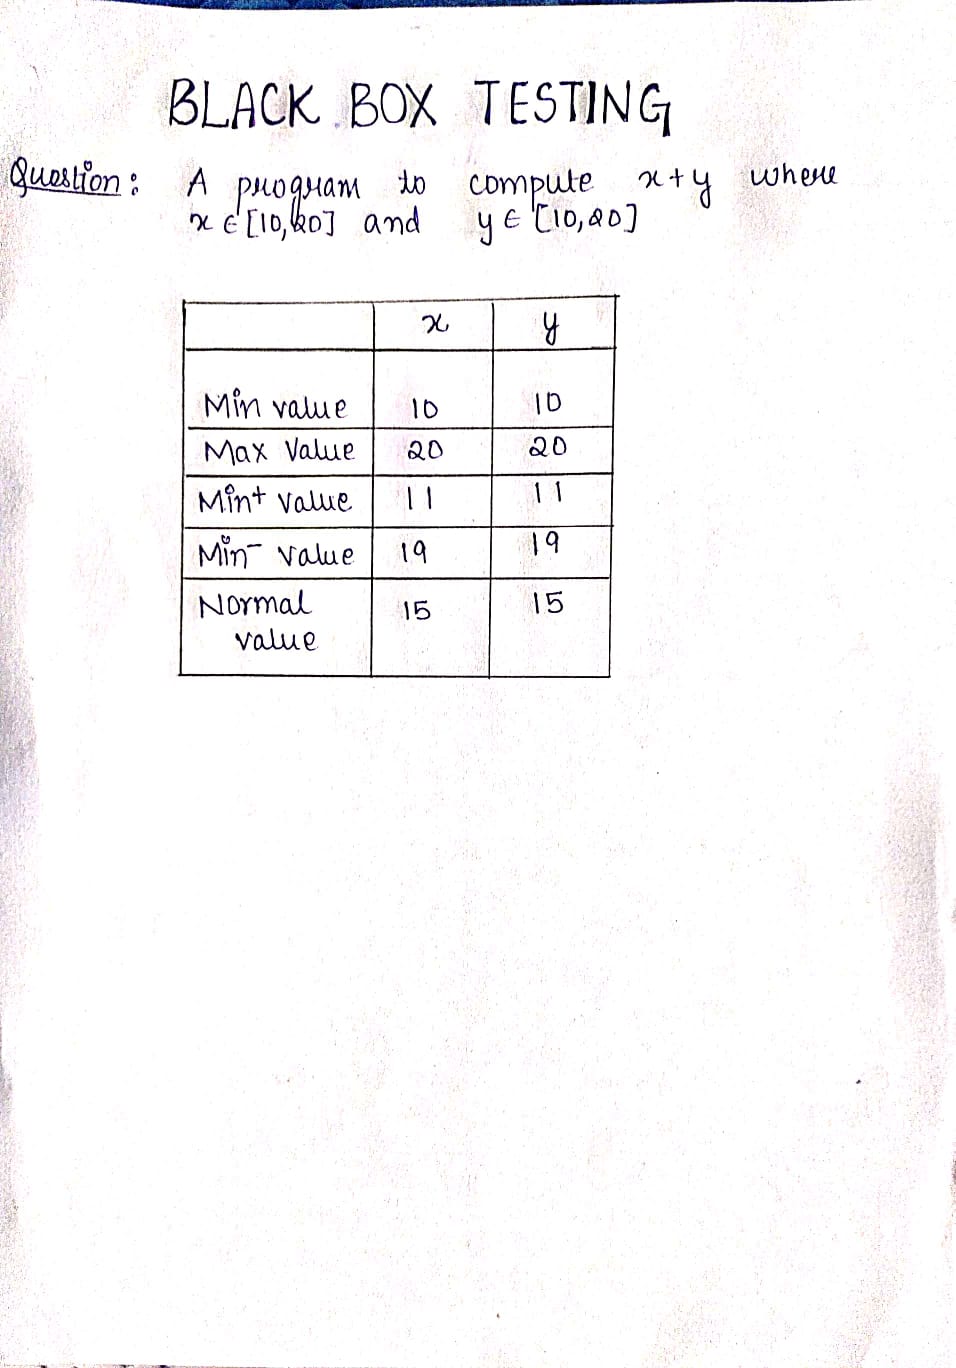 BLACK BOX TESTING
Question: A program to compute x+y where
x ∈ [10,20] and y ∈ [10,20]
x y
Min value 10 10
Max Value 20 20
Min+ value 11 11
Min- value 19 19
Normal
value 15 15